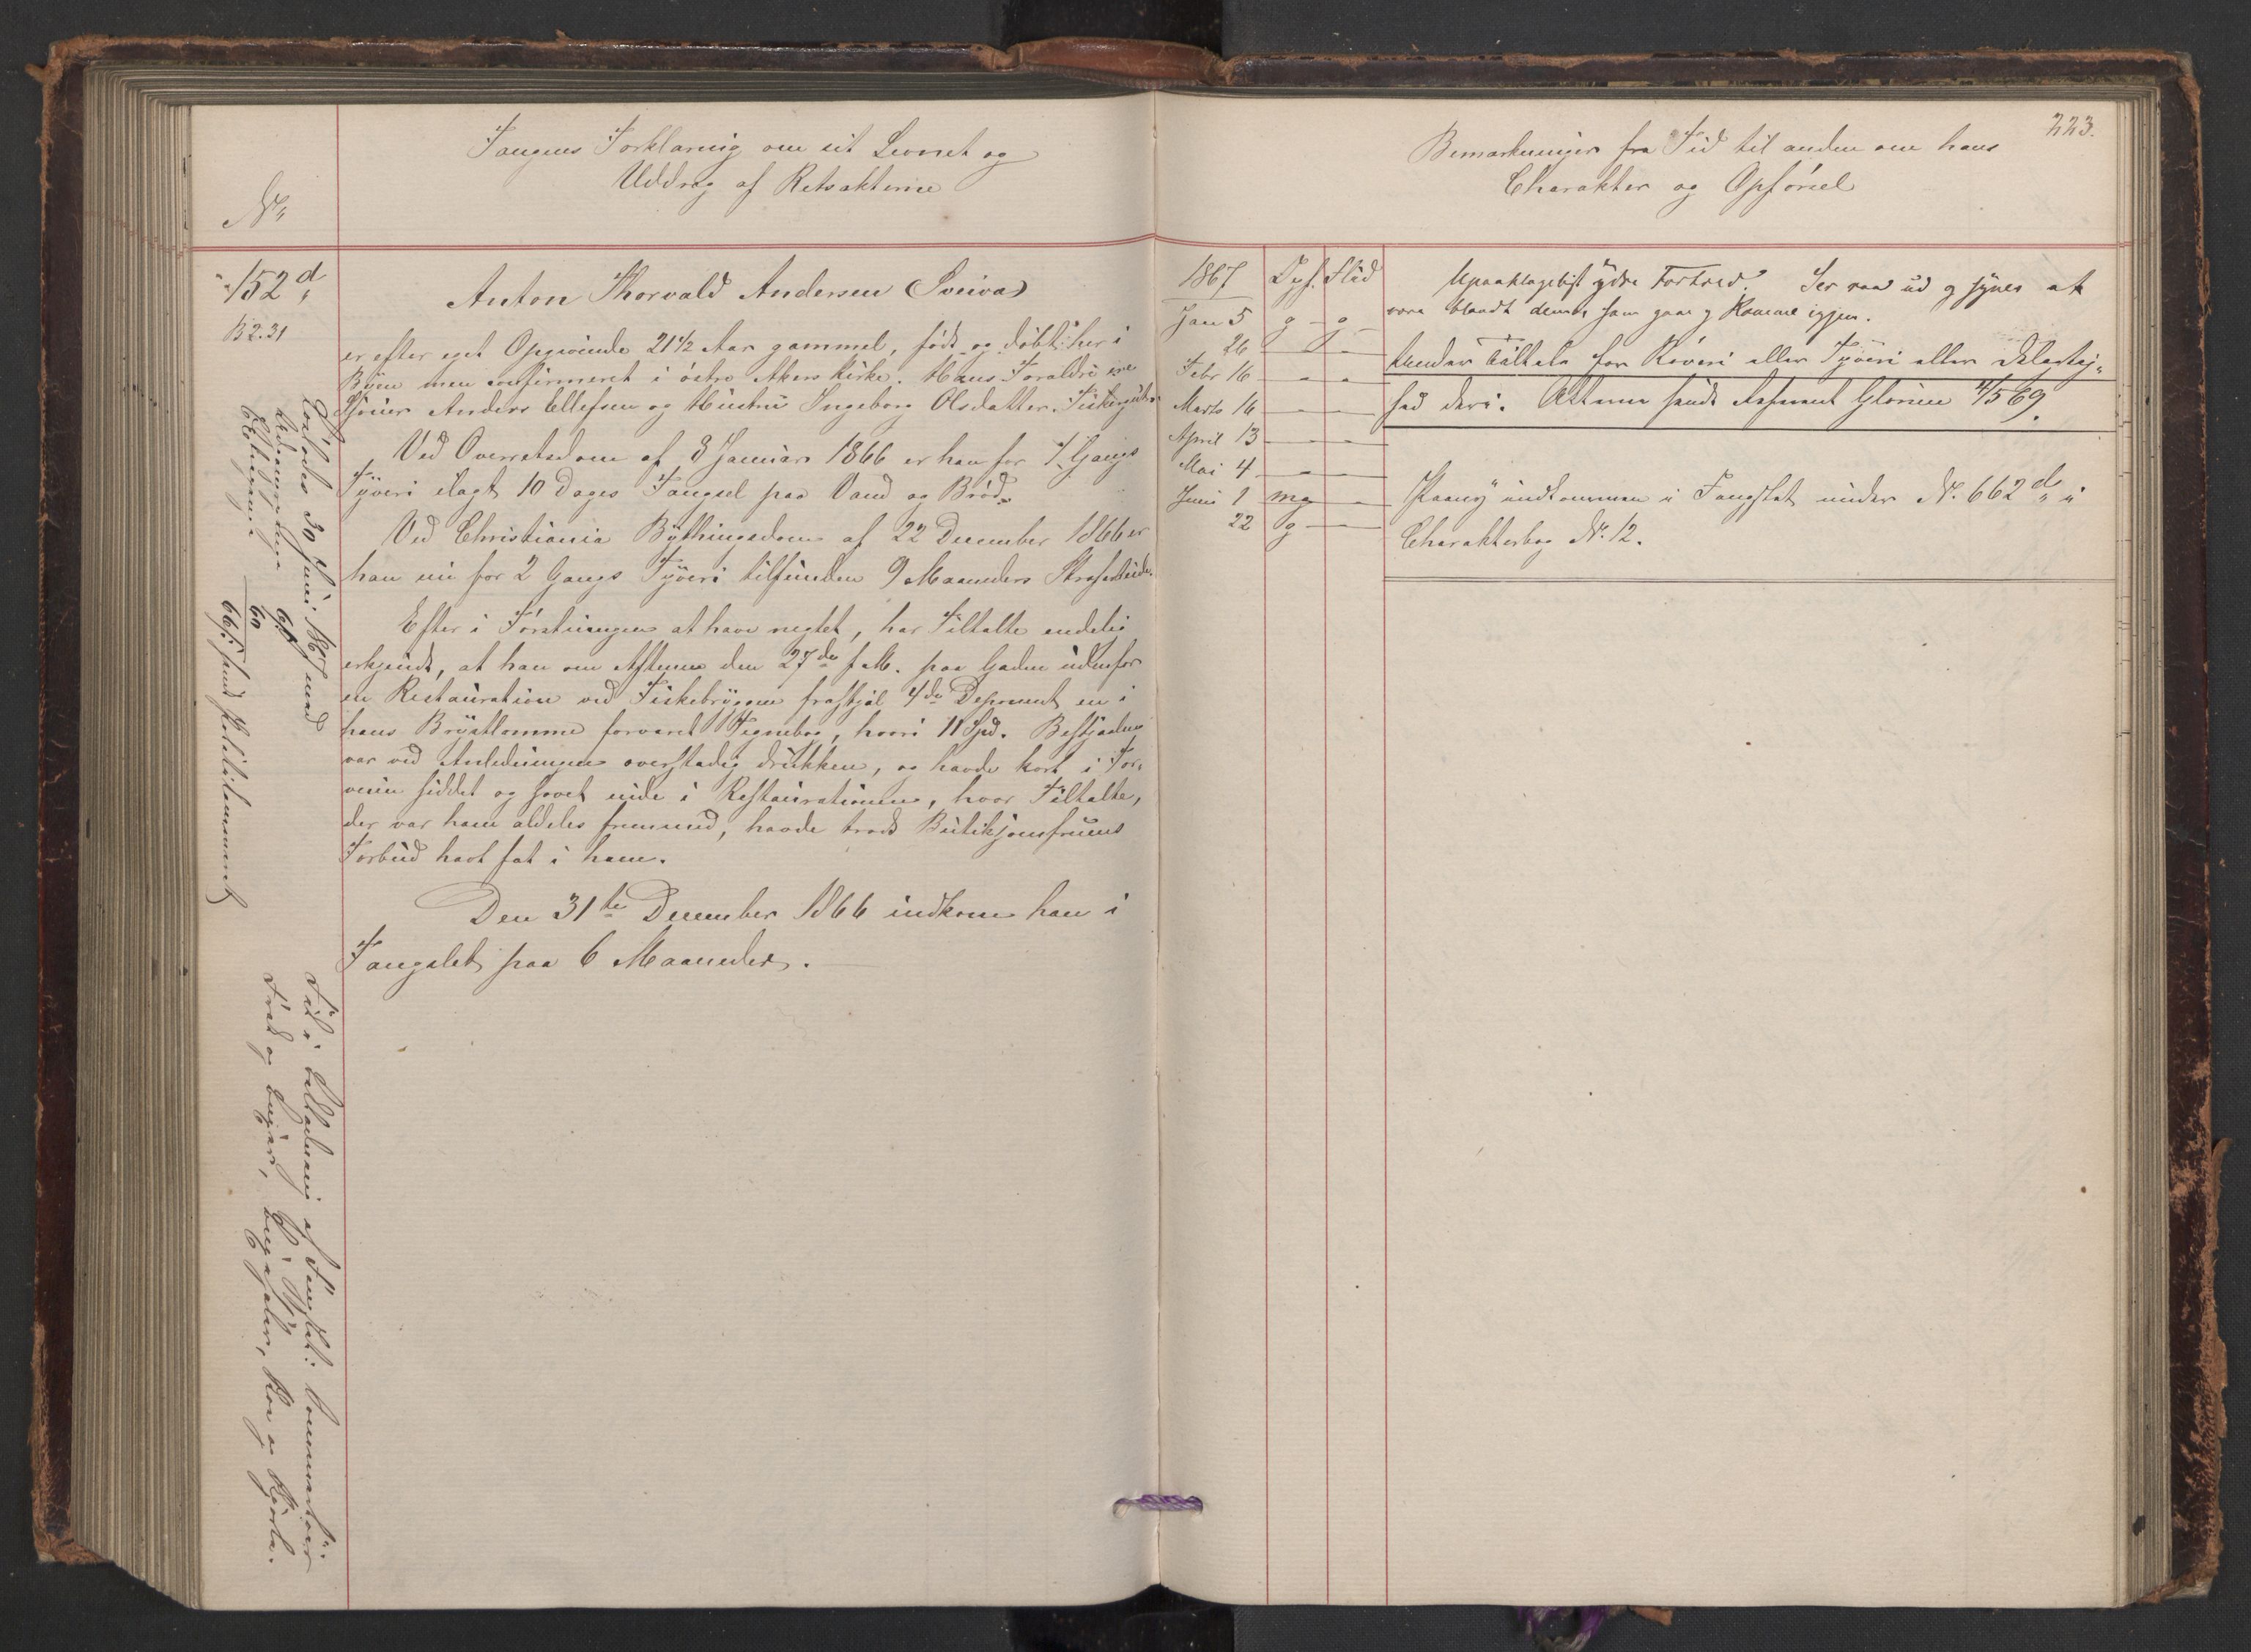 Fangens Forklaring om sit Levnet og
Uddrag af Retsakterne
No
152 d
B 2.31
Anton Thorvald Andersen (Sveiva)
er efter eget Opgivende 21 1/2 Aar gammel, født og døbt her i
Byen men confirmeret i østre Akers Kirke. Hans Forældre ere
Sjouer Anders Ellefsen og Hustru Ingeborg Olsdatter.
Ved Overretsdom af 8 Januar 1866 er han for 1. Gangs
Tyveri ilagt 10 Dages Fængsel paa Vand og Brød.
Ved Christiania Bythingsdom af 22 December 1866 er
han nu for 2 Gangs Tyveri tilfunden 9 Maaneders Strafarbeide.
Efter i Førstningen at have negtet, har Tiltalte endelig
erkjendt, at han om Aftenen den 27de f. M. paa Gaden udenfor
en Restauration ved Fiskebryggen frastjal 4de Deponent en i
hans Brystlomme forvaret Tegnebog, hvori 11 Spd. Bestjaalne
var ved Anledningen overstadig drukken, og havde kort i For-
veien siddet og sovet inde i Restaurationen, hvor Tiltalte,
der var ham aldeles fremmed, havde trods Butikjomfruens
Forbud havt fat i ham.
Den 31te December 1866 indkom han i
Fængslet paa 6 Maaneder.
Løslodes 30 Juni 1867 med
Arbeidspenge
Eftergivne
60
66 s. sendt Politikammeret
Tid i Beklædning af Fængslet:
Frak og Buxer,
223.
Bemærkninger fra Tid til anden om hans
Charakter og Opførsel
1867 Opf. Flid
Jan 5 g g
26 - -
Febr 16 - -
Marts 16 - -
April 13 - -
Mai 4 - -
Juni 1 mg -
22 g -
Upaaklageligt ydre Forhold. Ser raa ud og synes at
være blandt dem, som gaar og Komme igjen.
Under Tiltale for Röveri eller Tyveri eller Delagtig-
hed deri. Attesten sendt Assessor 4/5 69.
Paany indkommen i Fængslet under No. 662 d i
Charakterbog No. 12.